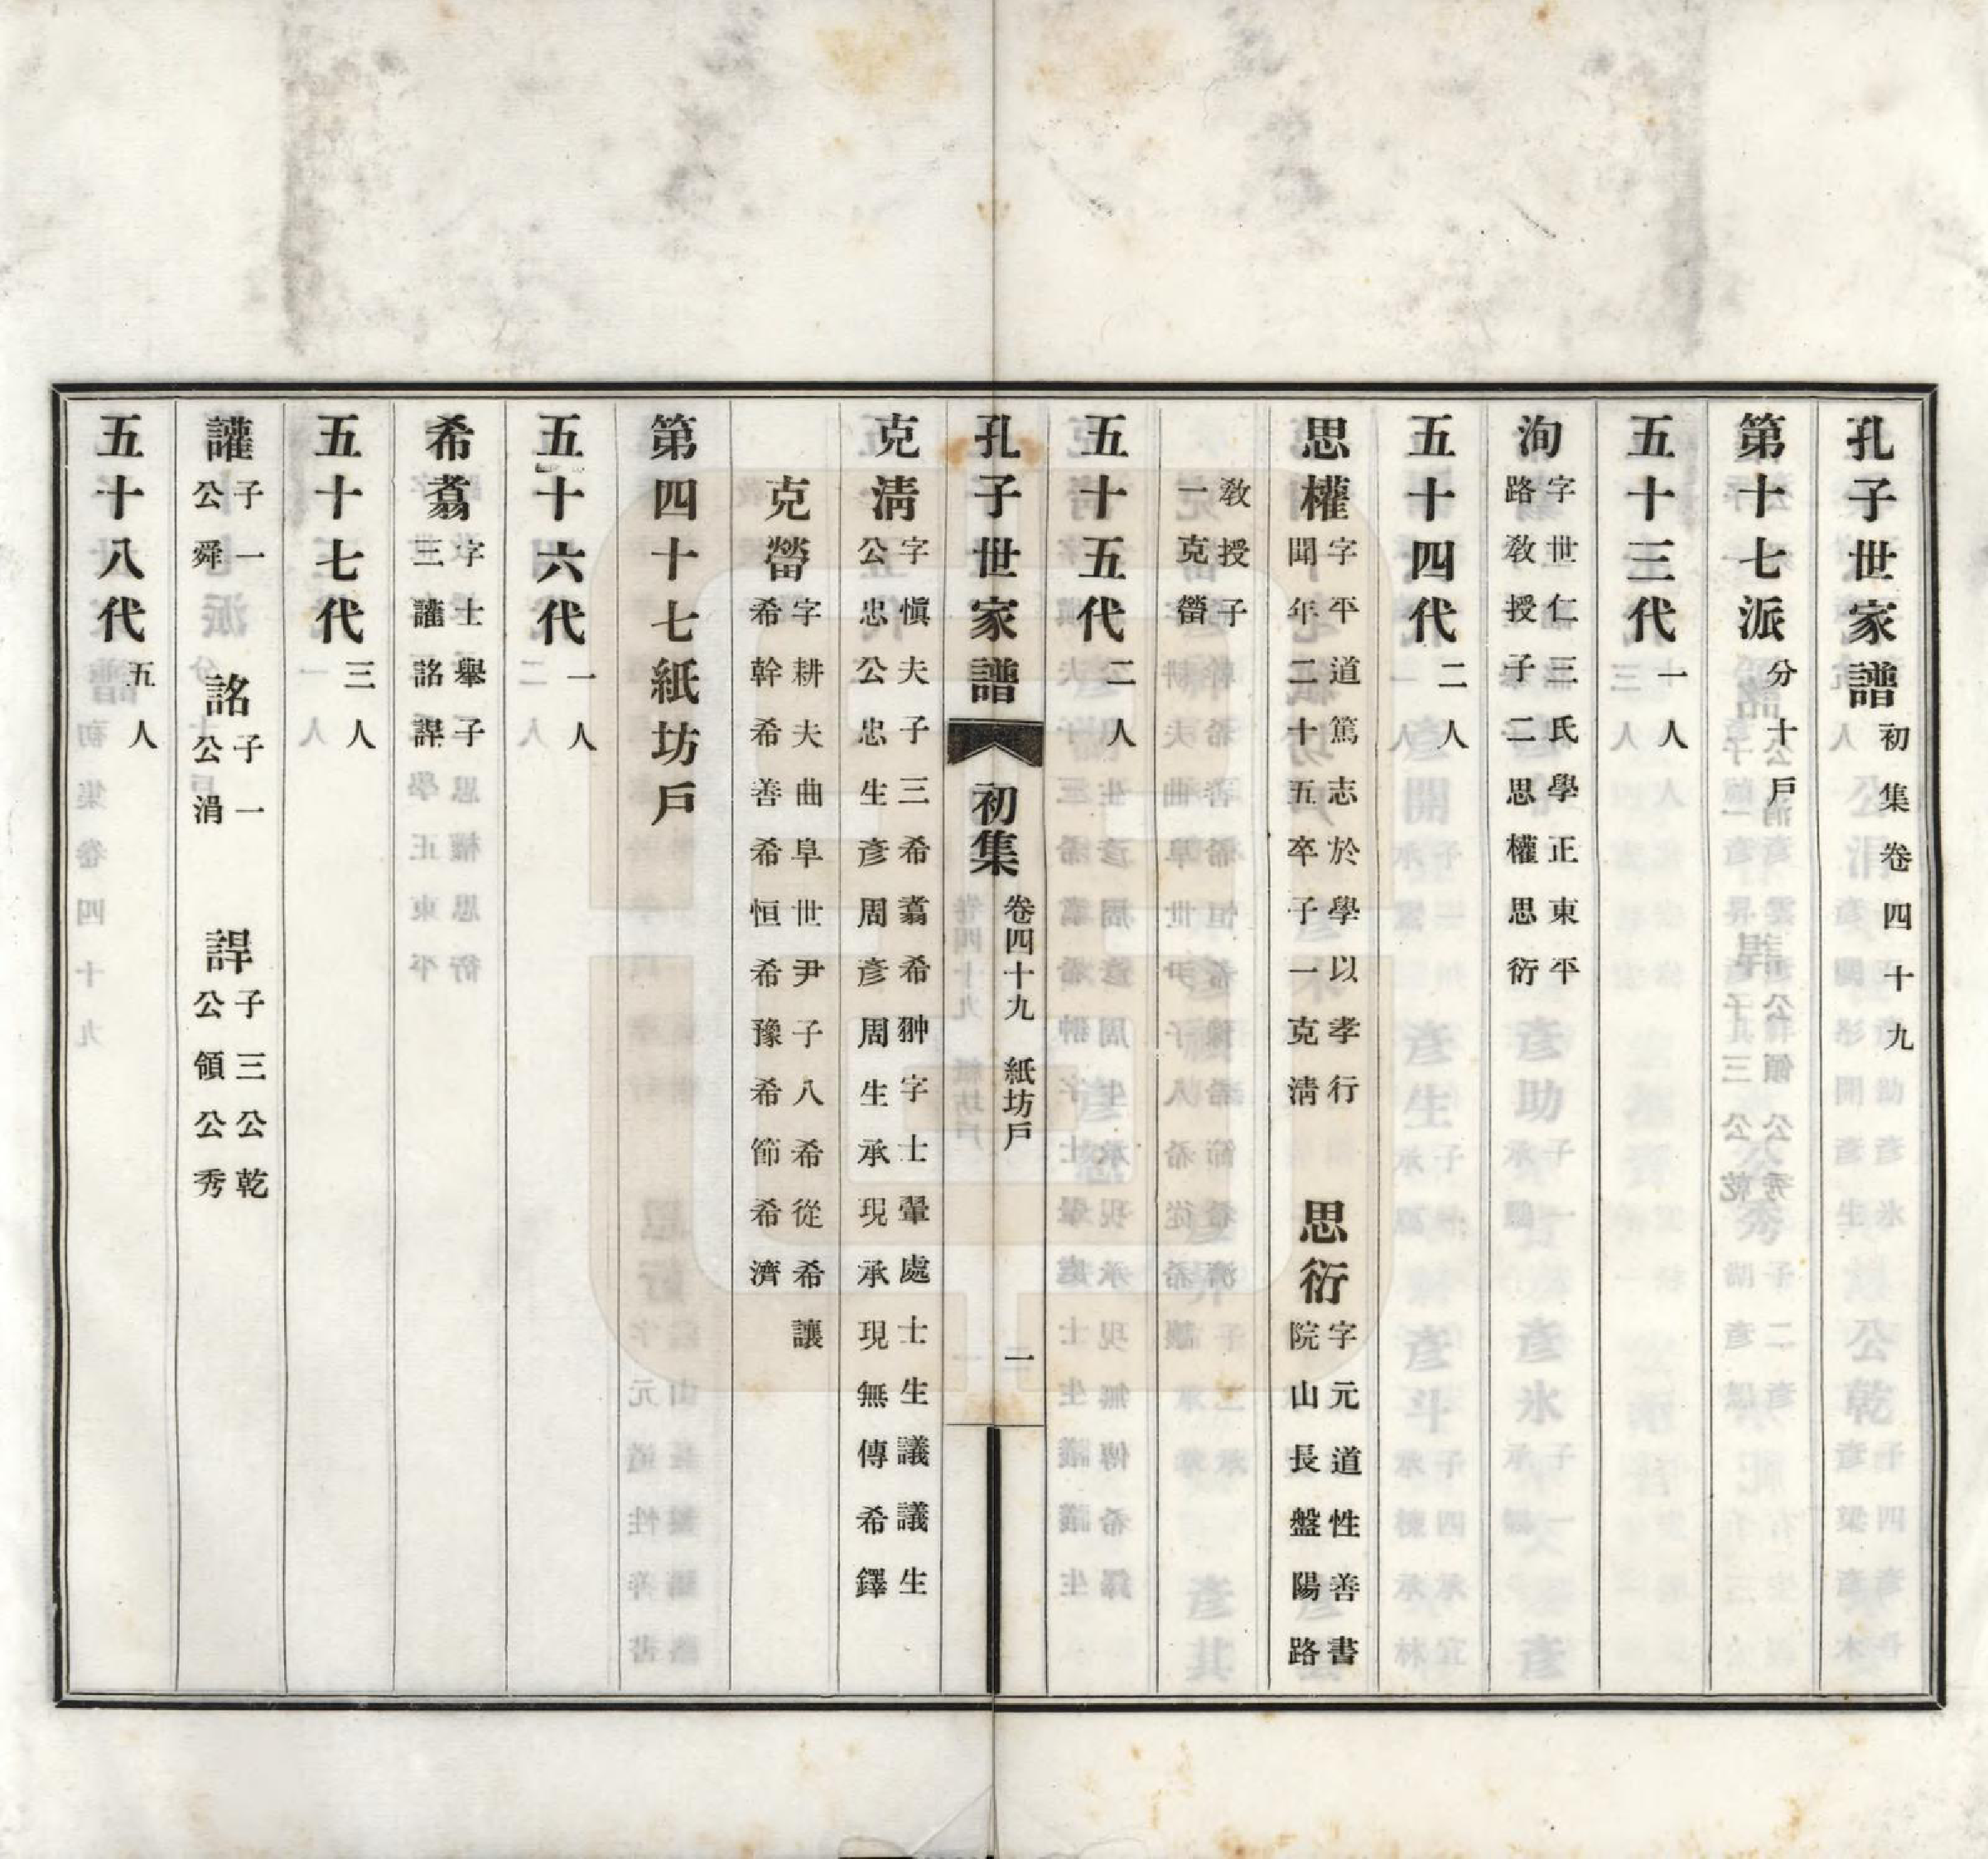 孔子世家譜 初集卷四十九
第十七派 分十戶
五十三代 一人
洵 字世仁三氏學正東平
路敎授子二思權思衍
五十四代 二人
思權 字平道篤志於學以孝行
聞年二十五卒子一克淸
思衍 字元道性善書
院山長盤陽路
敎授子
一克㽦
五十五代 二人
孔子世家譜 初集 卷四十九 紙坊戶 一
克淸 字愼夫子三希翥希翀字士翬處士生議議生
公忠公忠生彥周彥周生承現承現無傳希鐸
字耕夫曲阜世尹子八希從希讓
希幹希善希恒希豫希節希濟
第四十七紙坊戶
五十六代 一人
希翥 字士舉子
三讙詺諻
五十七代 三人
讙 子一
公舜
詺 子一
公涓
子三公乾
公領公秀
五十八代 五人